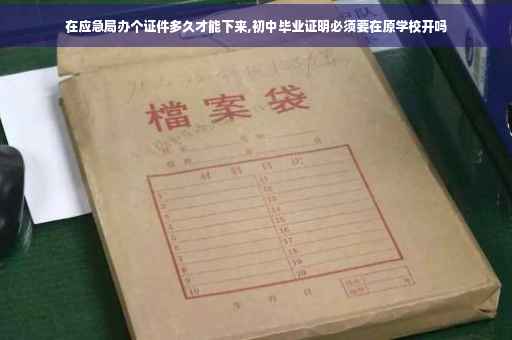 在应急局办个证件多久才能下来,初中毕业证明必须要在原学校开吗
檔案袋
材料目次
1 11
2 12
3 13
4 14
5 15
6 16
7 17
8 18
9 19
10 20
年 月 日